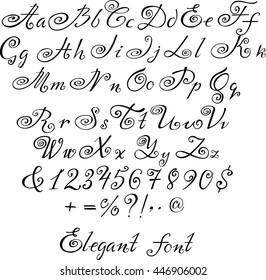 Aa Bb Cc Dd Ee Ff
Gg Hh Ii Jj Ll Kk
Mm Nn Oo Pp Qq
Rr Ss Tt Uu Vv
Ww Xx Yy Zz
& 1 2 3 4 5 6 7 8 9 0 $
+ = % ? ! , . @
Elegant font
shutterstock
IMAGE ID: 446906002
www.shutterstock.com